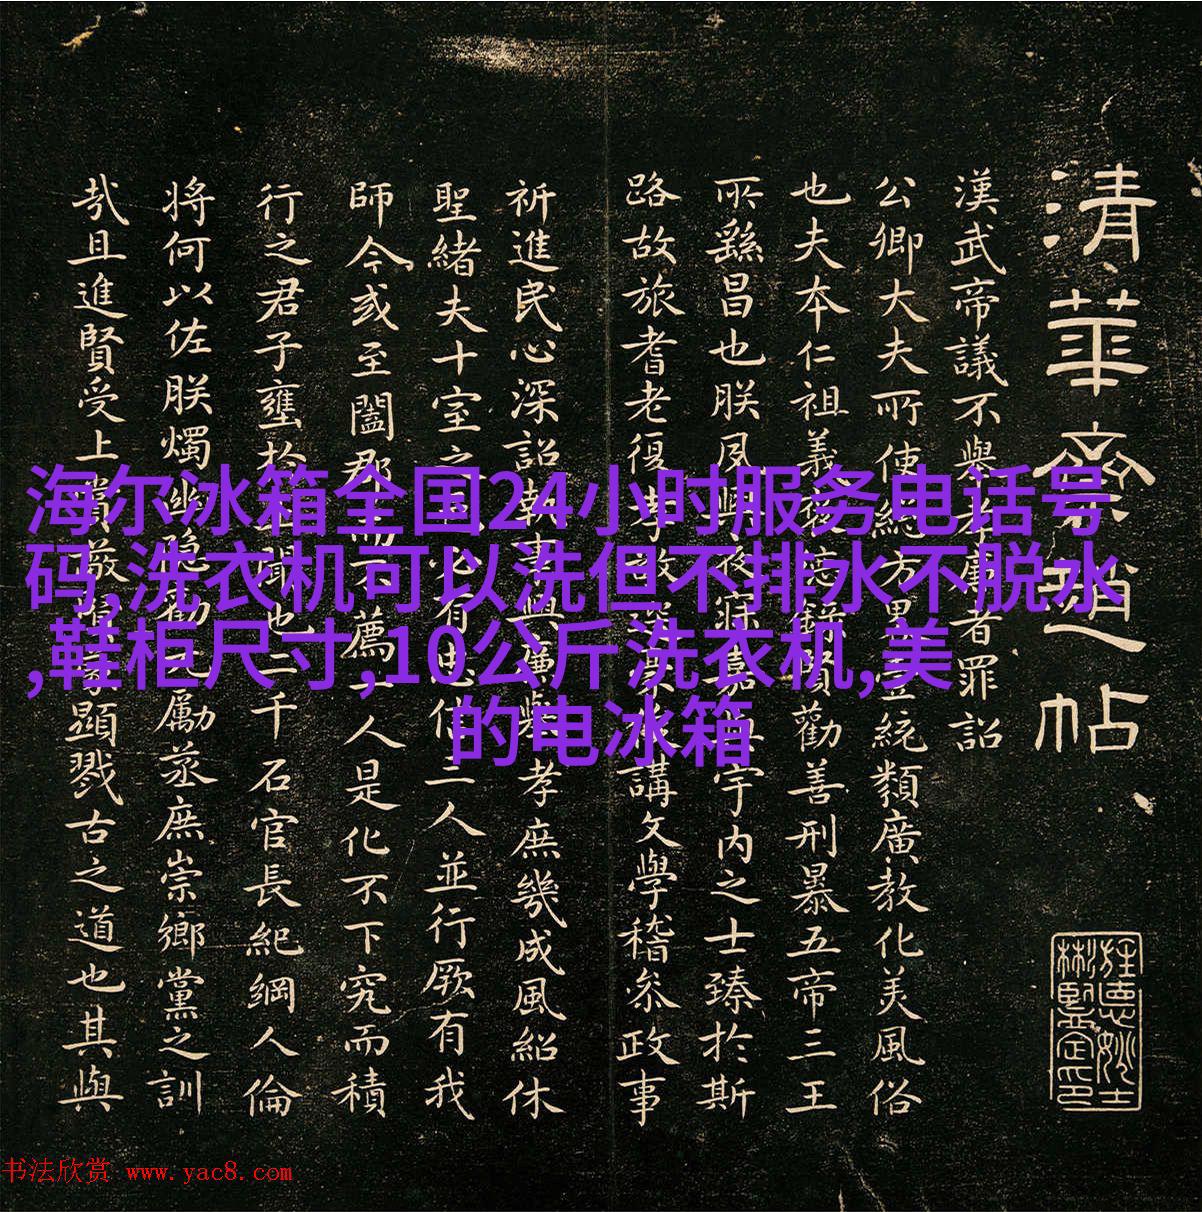 清華齋趙帖
漢武帝議不舉孝廉者罪詔
公卿大夫所使總方畧壹統類廣教化美風俗
也夫本仁祖義賢勸善刑暴五帝三王
所繇昌也朕夙興夜寐嘉與宇内之士臻於斯
路故旅耆老復孝敬講文學稽參政事
祈進民心深詔執事興廉舉孝庶幾成風紹休
聖緒夫十室之邑必有忠信三人並行厥有我
師今或至闔郡而不薦一人是化不下究而積
行之君子壅於上聞也二千石官長紀綱人倫
將何以佐朕燭幽隱勸元勵蒸庶崇鄉黨之訓
哉且進賢受上賞蔽賢蒙顯戮古之道也其與
海尔冰箱全国24小时服务电话号
码,洗衣机可以洗但不排水不脱水
,鞋柜尺寸,10公斤洗衣机,美
的电冰箱
书法欣赏 www.yac8.com